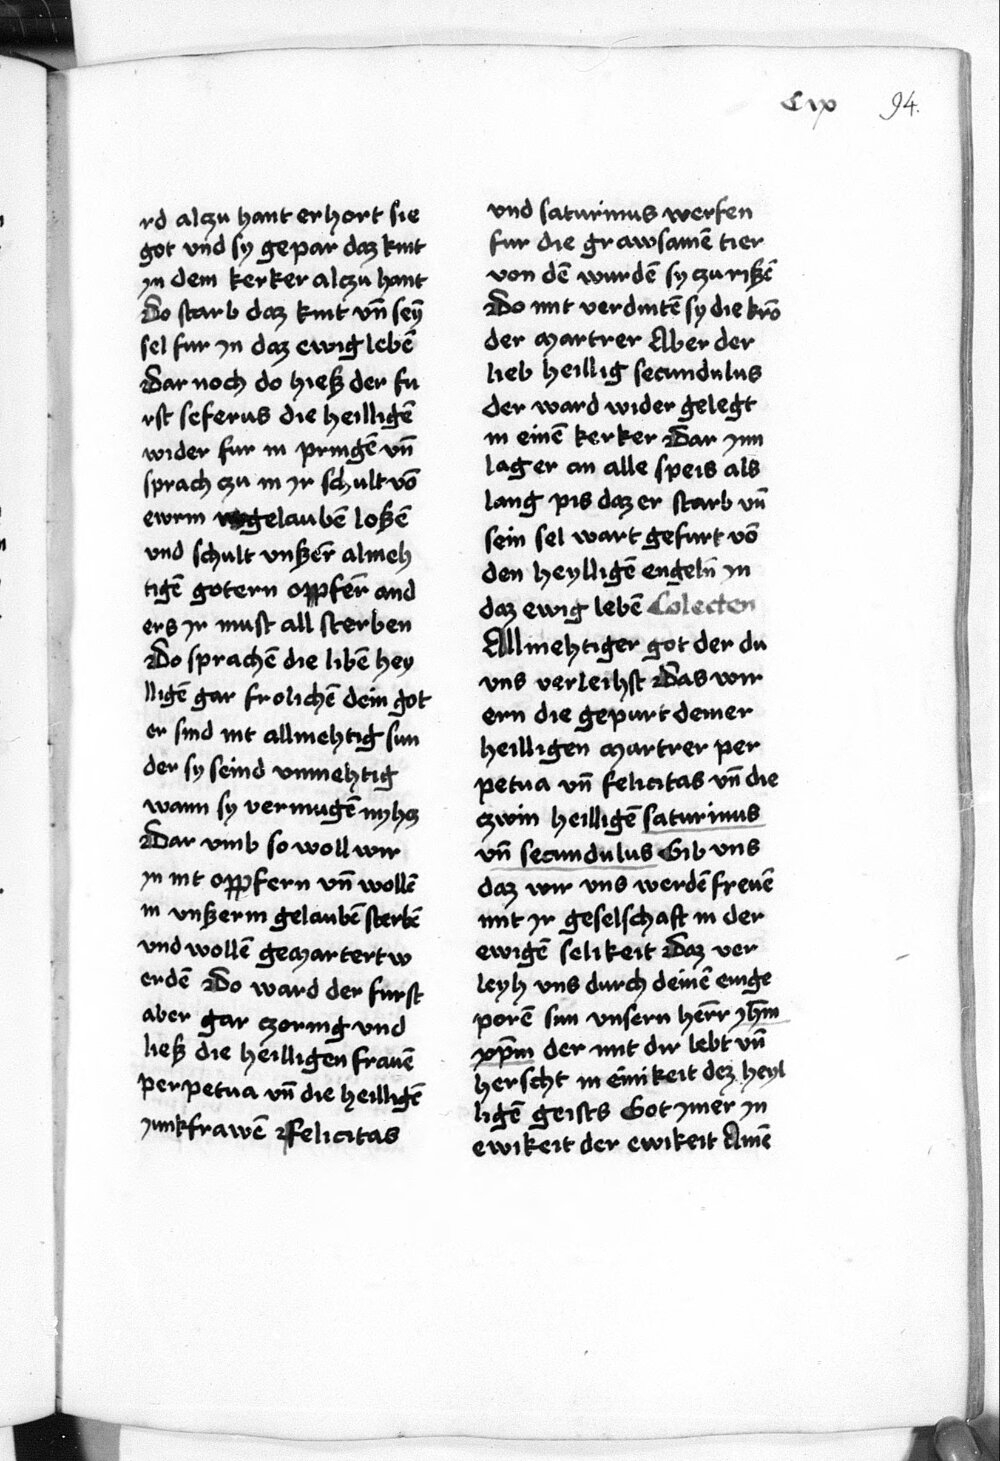 Cix 94.
rd alczu hant erhort sie
got vnd sy gepar daz kint
yn dem kerker alczu hant
Do starb daz kint vn̄ seÿ
sel fur yn daz ewig lebē
Dar noch do hieß der fu
rst seferus die heilligē
wider fur in pringē vn̄
sprach czu in yr schult vō
ewrm gelaubē loßē
vnd schult vnßer̄ almeh
tigē gotern oppfer̄ and
ers yr must all sterben
Do sprachē die libē hey
lligē gar frolichē dein got
er sind nit allmehtig sun
der sy seind vnmehtig
wann sy vermugē nyhcz
Dar vmb so woll wir
yn nit oppfern vn̄ wollē
in vnßerm gelaubē sterbē
vnd wollē gemartert w
erdē Do ward der furst
aber gar czornig vnd
ließ die heilligen frauē
perpetua vn̄ die heilligē
junkfrawē Felicitas
vnd saturinus werfen
fur die grawsamē tier
von dē wurdē sy czurißē
Do mit verdintē sy die krō
der martrer Aber der
lieb heillig secundulus
der ward wider gelegt
in einē kerker Dar ynn
lag er an alle speis als
lang pis daz er starb vn̄
sein sel wart gefurt vō
den heylligē engeln̄ yn
daz ewig lebē Colecten
Allmehtiger got der du
vns verleihst Das wir
ern die gepurt deiner
heilligen martrer per
petua vn̄ felicitas vn̄ die
czwin heilligē saturinus
vn̄ secundulus Gib vns
daz wir vns werdē freuē
mit yr geselschaft in der
ewigē selikeit Daz ver
leyh vns durch deinē einge
porē sun vnsern her̄r yh̄m
xp̄m der mit dir lebt vn̄
herscht in einikeit dez heyl
ligē geists Got ymer yn
ewikeit der ewikeit Amē